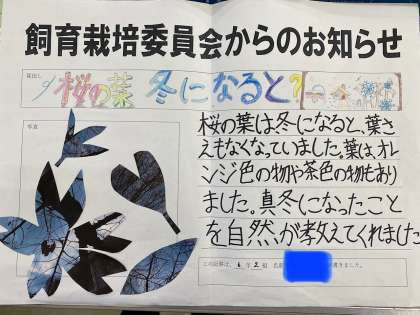 飼育栽培委員会からのお知らせ
見出し
桜の葉 冬になると?
写真
桜の葉は冬になると、葉さ
えもなくなっていました。葉は、オレ
ンジ色の物や茶色の物もあり
ました。真冬になったこと
を自然が教えてくれました
この記事は、6年2組 名前 が書きました。